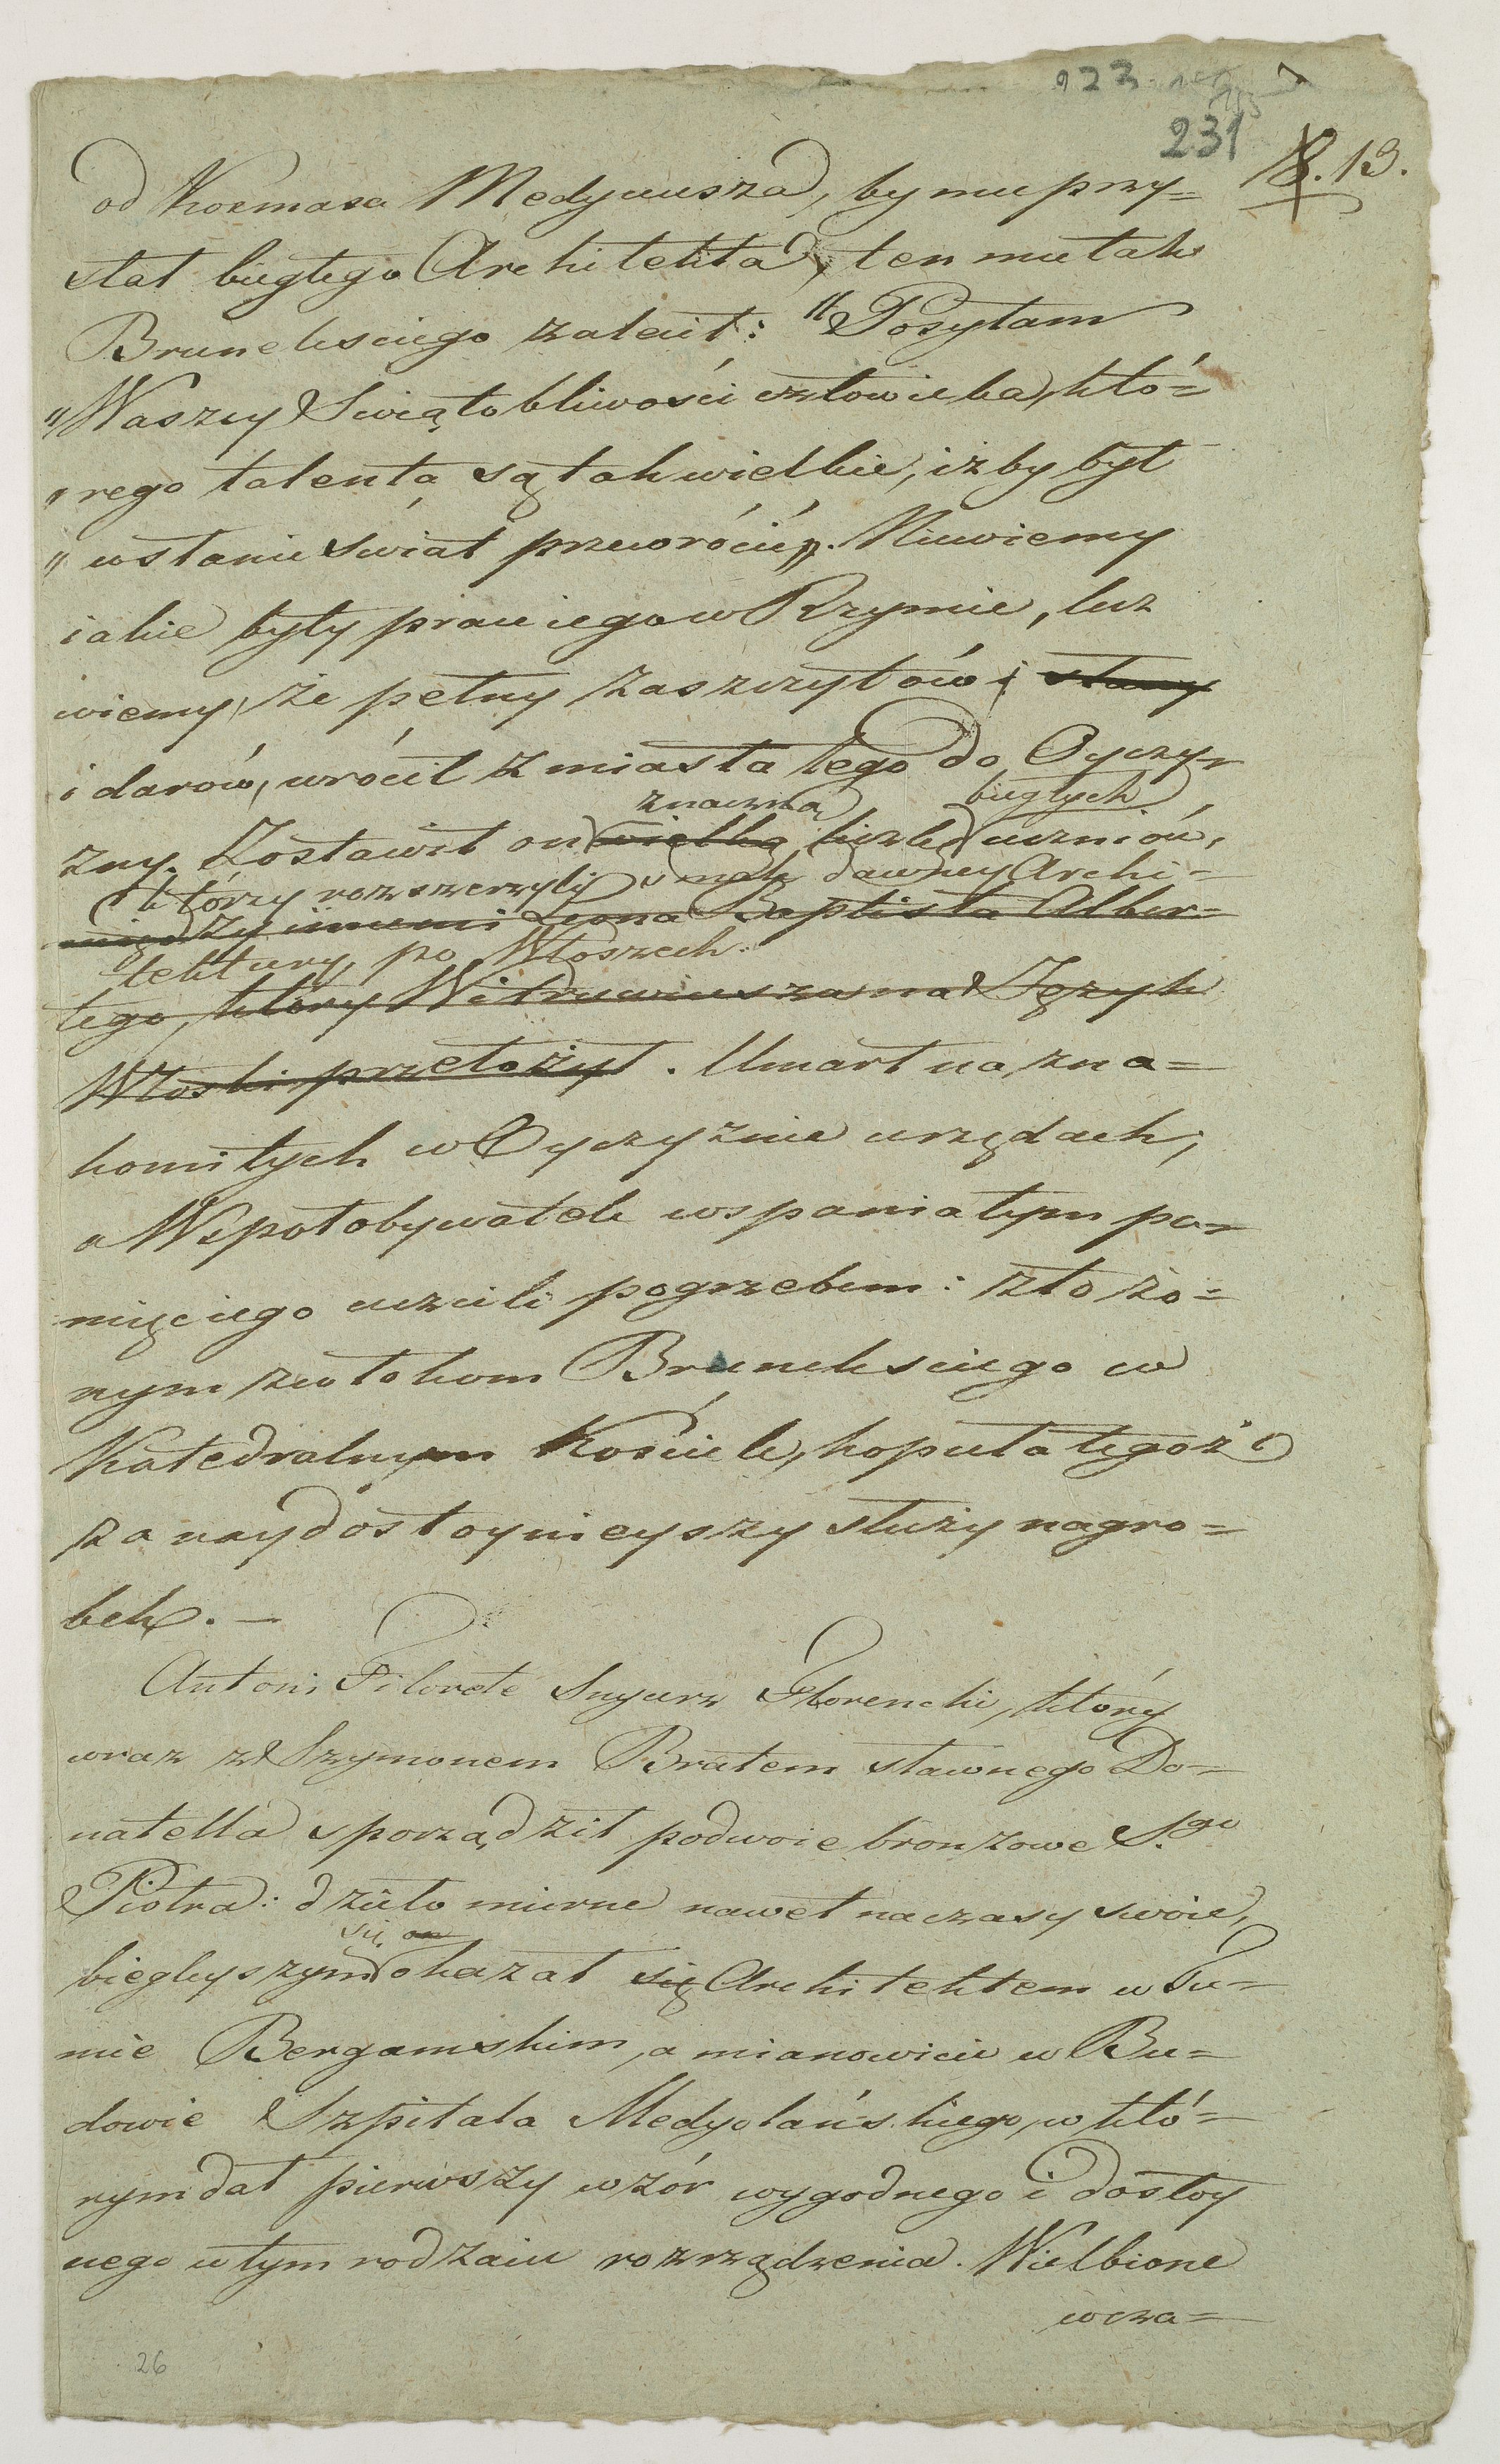 231
13.
od Kozmasa Medyceusza, by mu przy=
słał biegłego Architekta, ten mu tak
Brunelesciego zalecił: "Posyłam
"Waszey Swiątobliwości człowieka, któ=
"rego talenta są tak wielkie, iż by był
"w stanie świat przewrócić". Niewiemy
iakie były prace iego w Rzymie, lecz
wiemy, że pełny zaszczytów i sławy
i darów, wrócił z miasta tego do Oyczy=
znaczną biegłych
zny. Zostawił on wielką liczbę uczniów,
którzy rozszerzyli smak dawney Archi=
między innemi Leona Baptista Alber=
tektury, po Włoszech.
tego, który Witruwiusza na Język
Włoski przełożył. Umarł na zna=
komitych w Oyczyznie urzędach,
a Współobywatele wspaniałym pa=
mięć iego uczcili pogrzebem: złożo=
nym zwłokom Brunelesciego w
Katedralnym Kościele, kopuła tegoż
za naydostoynieyszy służy nagro=
bek. —
Antoni Filarete Snycerz Florencki, który
wraz z Szymonem Bratem sławnego Do=
natella sporządził podwoie bronzowe S.go
Piotra: dzieło mierne nawet na czasy swoie,
się on
biegleyszym okazał się Architektem w Tu=
mie Bergamskim, a mianowicie w Bu=
dowie Szpitala Medyolańskiego, w któ=
rym dał pierwszy wzór wygodnego i dostoy
nego w tym rodzaiu rozrządzenia. Wielbione
w cza=
26